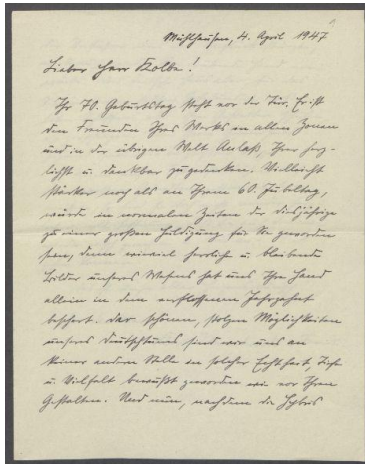 Mühlhausen, 4. April 1947
Lieber Herr Kolbe!
Ihr 70. Geburtstag steht vor der Tür. Er ist
den Freunden Ihres Werks in allen Zonen
und in der übrigen Welt Anlaß, Ihrer herz-
lichst u. dankbar zu gedenken. Vielleicht
stärker noch als an Ihrem 60. Jubeltag,
würde in normalen Zeiten der diesjährige
zu einer großen Huldigung für Sie geworden
sein, denn wieviel herrliche u. bleibende
Bilder unseres Wesens hat uns Ihre Hand
allein in dem verflossenen Jahrzehnt
beschert. Der schönen, stolzen Möglichkeiten
unseres Deutschtums sind wir uns an
keiner anderen Stelle in solcher Echtheit, Tiefe
u. Vielfalt bewußt geworden wie vor Ihren
Gestalten. Und nun, nachdem die Hybris